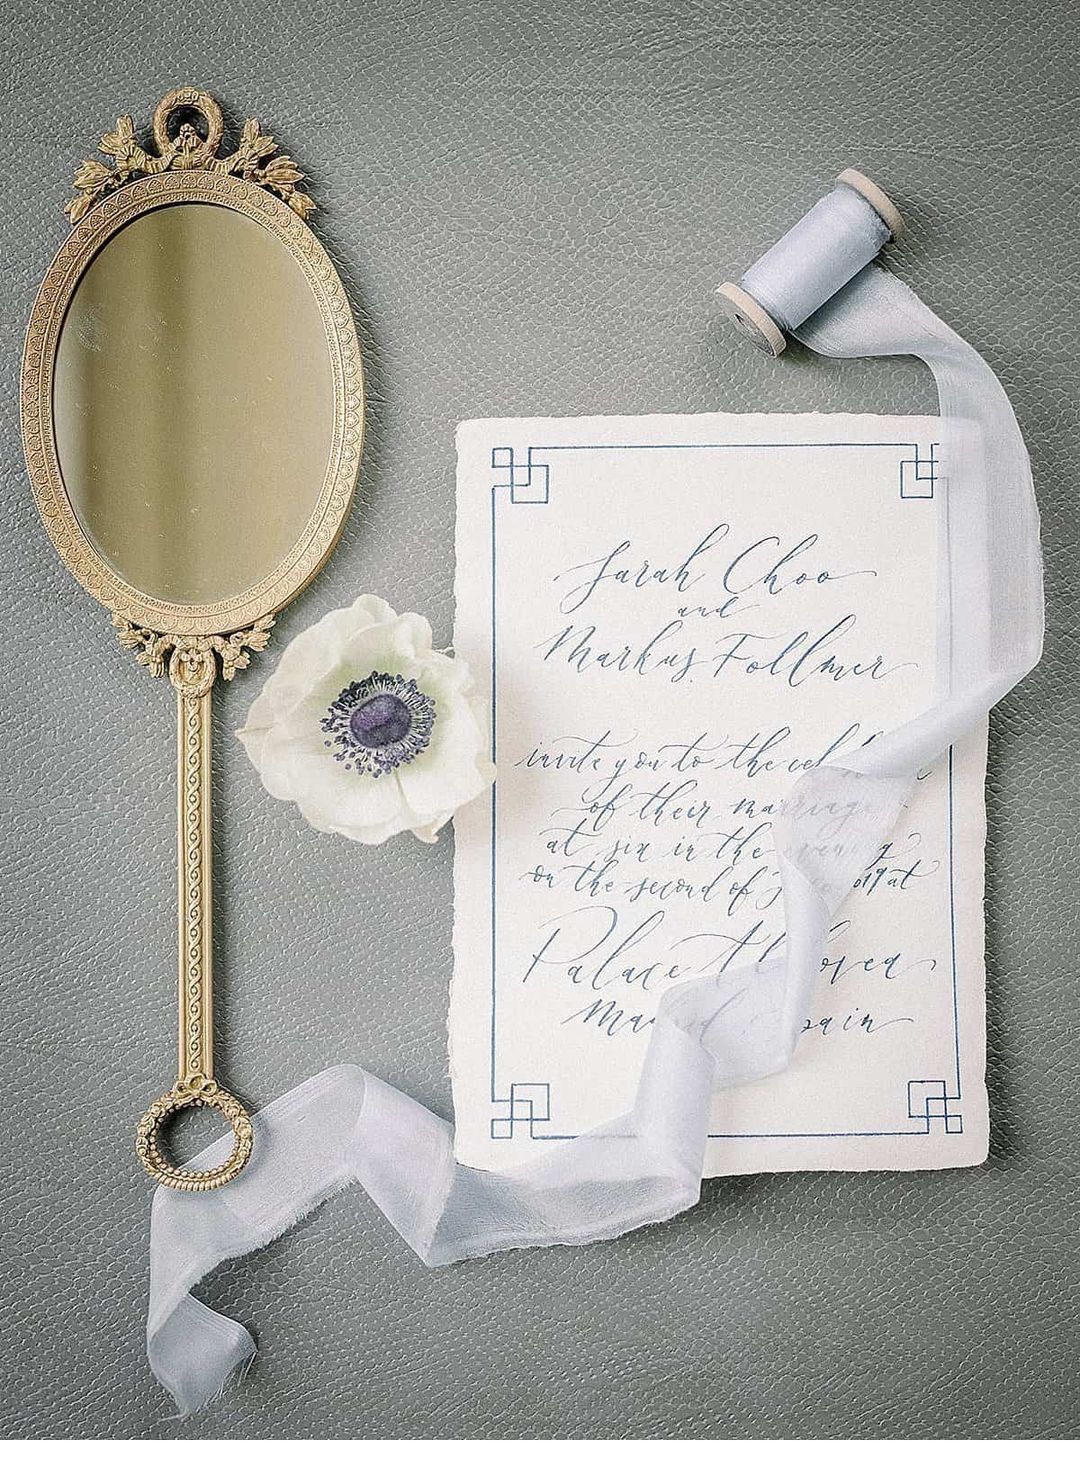 Sarah Choo
and
Markus Follmer
invite you to the
of their marriage
at six in the evening
on the second of 2019 at
Palace
Spain